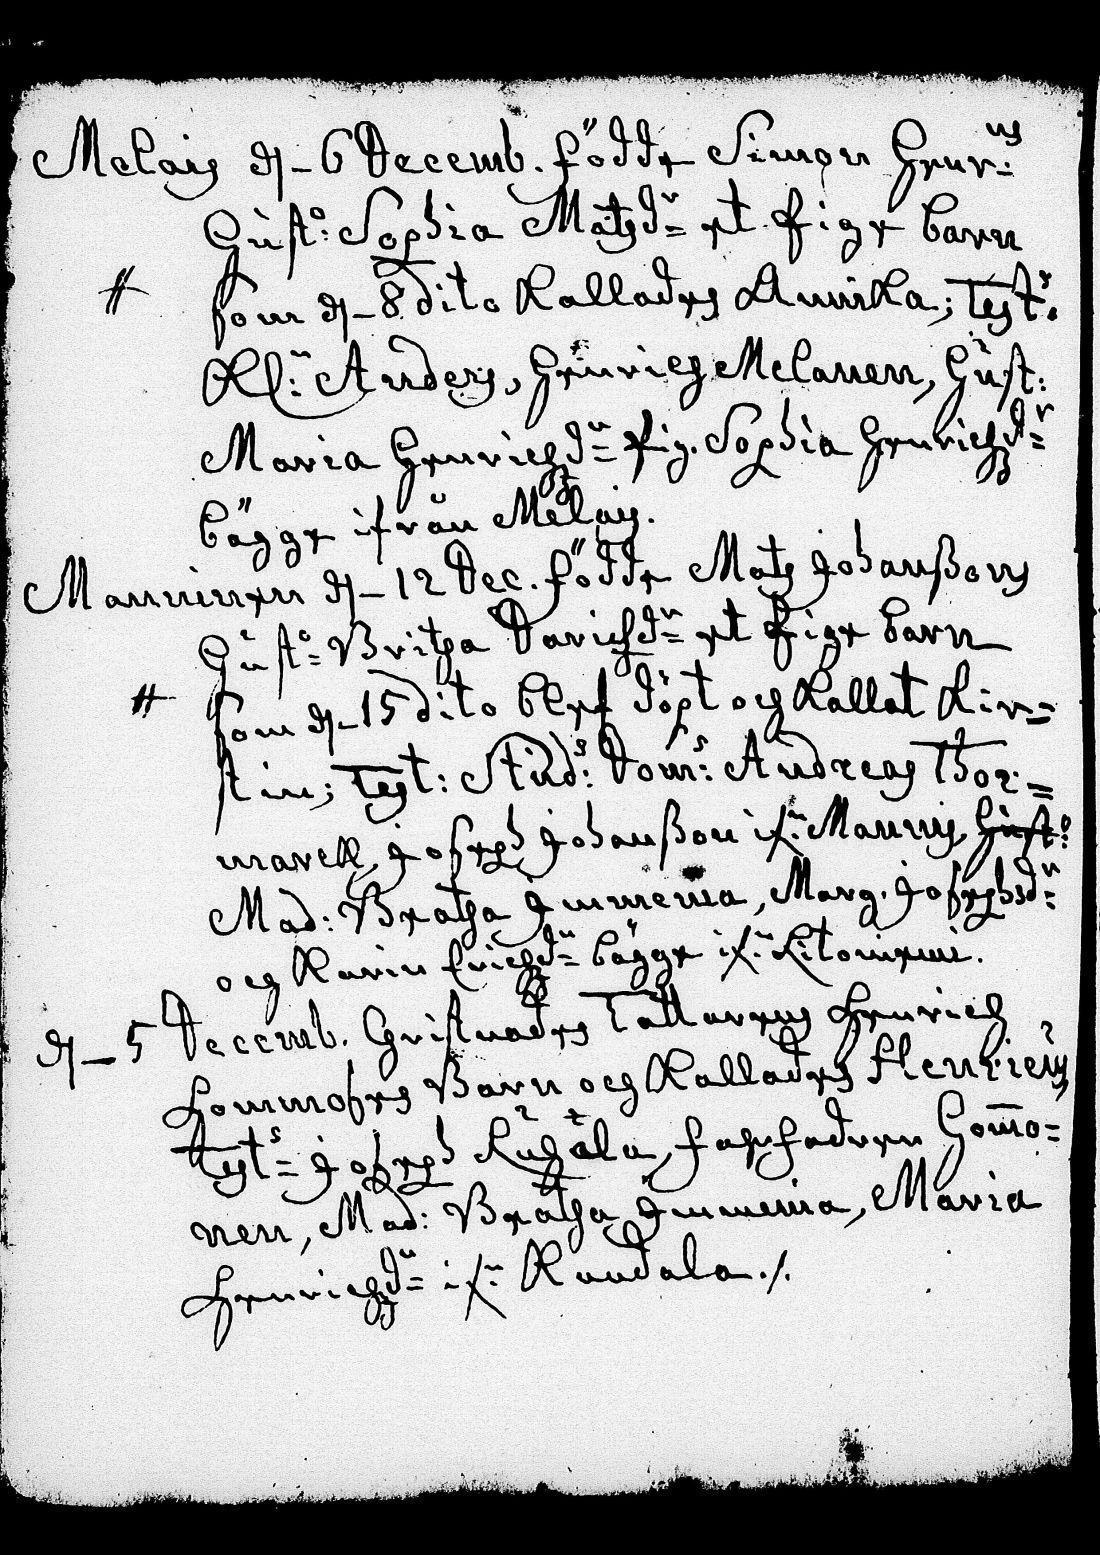 Melais d. 6 Decemb. födde Simon Henr:ns
Hust:o Sophia Matsd:r et Pige barn
# som d. 8 dito Kallades Annika; Test:s
Kl:n Anders, Hinrich Melanen, Hust:
Maria Henrichsd:r Pig. Sophia Henrichsd:r
bägge ifrån Melais.
Manninen d. 12 Dec. födde Mats Johanßons
Hust:o Britha Davidsd:r et Pige barn
# som d. 15 dito blef döpt och Kallat Kir=
stin; Test: Stud:s Dom:s Andreas Thor:=
warck, Joseph Johanßon if:n Mannis, Hust:o
Mad: Breatha Immenia, Marg. Josephsd:r
och Karin Erichsd:r bägge if:n Litoinemi.
d. 5 Decemb. Christnades Tattarens Henrich
Lommoses Barn och Kallades Henricus
Test:s Joseph Lughåla, Fougfadren Homo=
nen, Mad: Breatha Immenia, Maria
Henrichsd:r if:n Randala./.